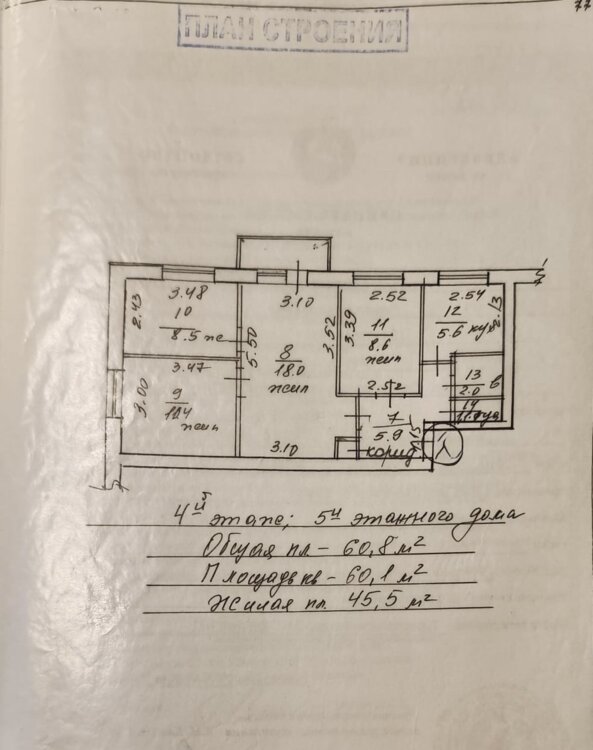 77
ПЛАН СТРОЕНИЯ
3.48
10
8.5 жс
2.43
3.47
9
10.4
жил
3.00
5.50
3.10
8
18.0
жил
3.52
3.10
2.52
3.39
11
8.6
жил
2.52
7
5.9
корид
2.54
12
5.6 кух
2.13
13
2.0 в
14
4й этаже; 5и этажного дома
Общая пл – 60,8 м²
Площадь кв – 60,1 м²
Жилая пл. 45,5 м²